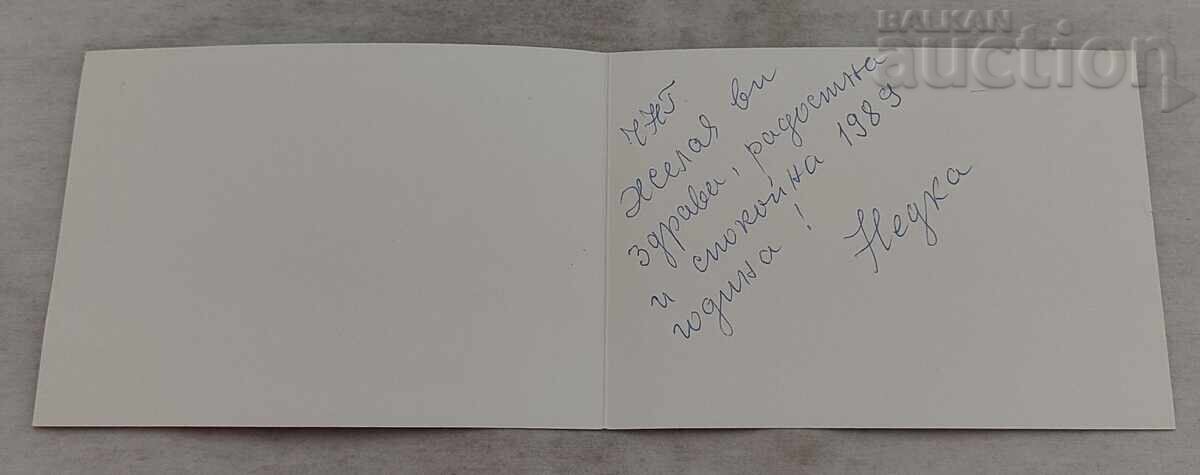 BALKAN
auction
ЧНГ.
Желая ви
здрава, радостна
и спокойна 1989
година!
Недка